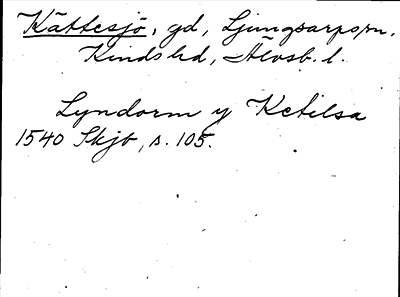 Kättesjö, gd, Ljungsarps sn.
Kinds hd, Älvsb. l.
Lyndorm y Ketilsa
1540 Skjb, s. 105.